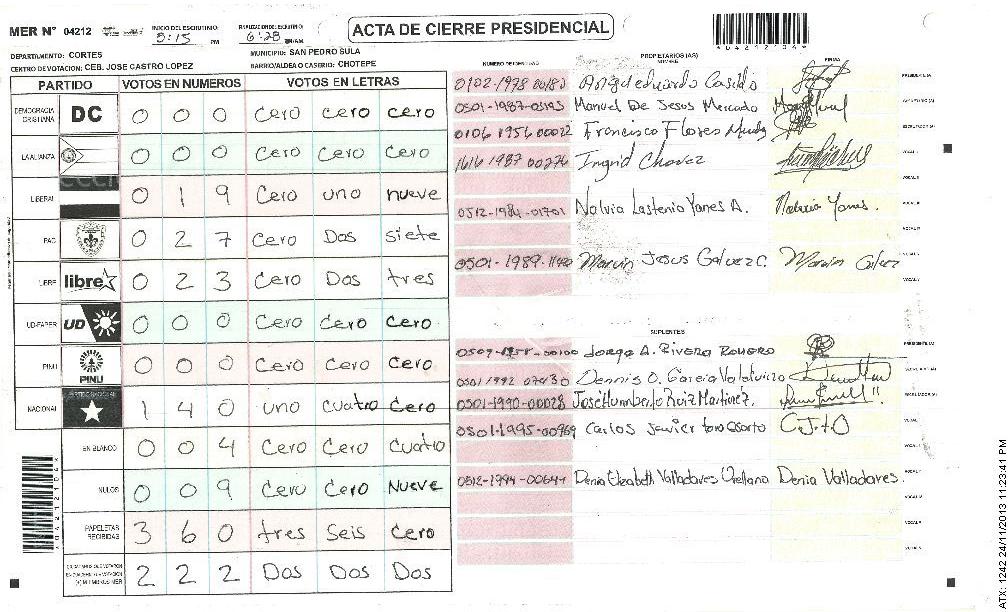 MER N° 04212
INICIO DEL ESCRUTINIO: 5:15 PM
6:28
ACTA DE CIERRE PRESIDENCIAL
04212104
DEPARTAMENTO: CORTES
MUNICIPIO: SAN PEDRO SULA
CENTRO DE VOTACION: CEB. JOSE CASTRO LOPEZ
BARRIO/ALDEA O CASERIO: CHOTEPE
PARTIDO VOTOS EN NUMEROS VOTOS EN LETRAS
DEMOCRACIA CRISTIANA DC 0 0 0 Cero cero cero
LA ALIANZA 0 0 0 Cero Cero Cero
LIBERAL 0 1 9 Cero uno nueve
PAC 0 2 7 Cero Dos siete
LIBRE libre 0 2 3 Cero Dos tres
UD-FAPER UD 0 0 0 Cero Cero Cero
PINU PINU 0 0 0 Cero Cero Cero
NACIONAL 1 4 0 uno cuatro Cero
EN BLANCO 0 0 4 Cero Cero Cuatro
NULOS 0 0 9 Cero Cero Nueve
PAPELETAS RECIBIDAS 3 6 0 tres seis cero
2 2 2 Dos Dos Dos
NUMERO DE IDENTIDAD PROPIETARIOS (AS) NOMBRE FIRMA
0102-1978 00183 PRESIDENTE(A)
0501-1987-03193 Manuel De Jesus Mercado
0106 1956 00022 Francisco Flores
1616 1987 00276 Ingrid Chavez
0512-1984-01701 Nolvia Lastenia Yanes A.
0501-1989-1140 Marvin Jesus Galvez C. Marvin Galvez
SUPLENTES
Jorge A. Rivera Romero PRESIDENTE(A)
0501 1992 07430 Dennis O. Garcia
0501-1990-00028 Jose Humberto Ruiz Martinez.
0501-1995-00969 Carlos Javier C.J.T.O
Denia Elizabeth Valladares Orellana Denia Valladares.
ATX: 1242 24/11/2013 11:23:41 PM